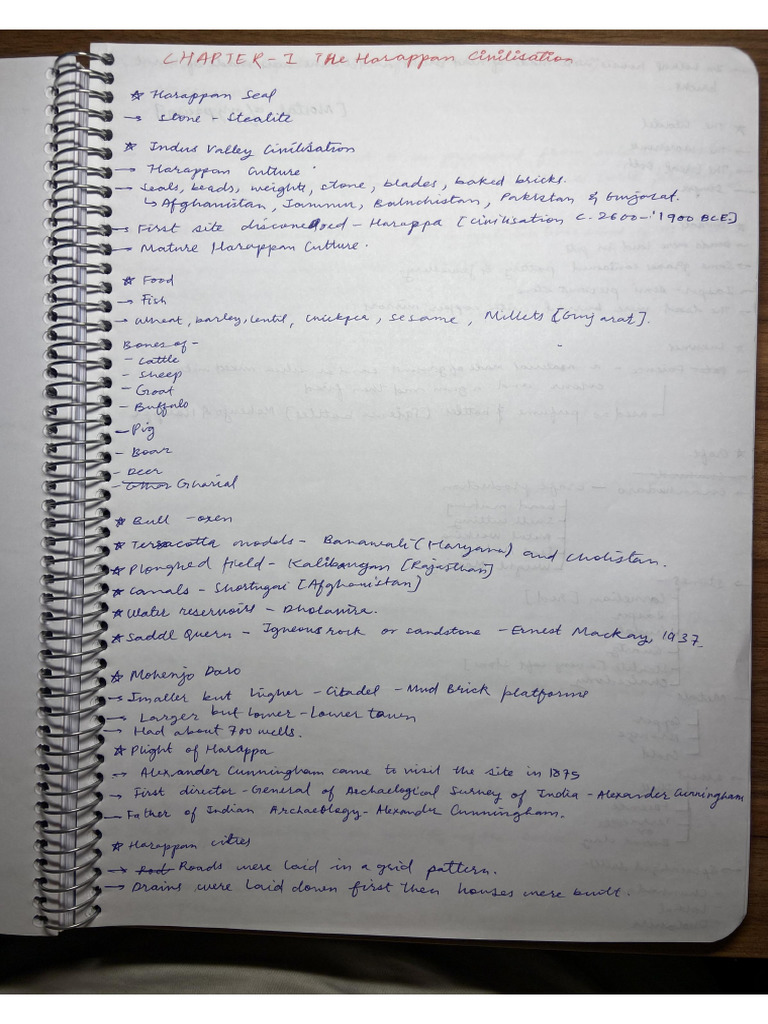 CHAPTER - I The Harappan Civilisation
☆ Harappan Seal
→ Stone - Stealite
☆ Indus Valley Civilisation
→ Harappan Culture.
→ Seals, beads, weights, stone, blades, baked bricks.
↳ Afghanistan, Jammu, Balnchistan, Pakistan & Gujarat.
→ First site discovered - Harappa [Civilisation C. 2600-1900 BCE]
→ Mature Harappan Culture.
☆ Food
→ Fish
→ Wheat, barley, lentil, chickpea, sesame, Millets [Gujarat].
Bones of -
- Cattle
- Sheep
- Goat
- Buffalo
- Pig
- Boar
- Deer
- Gharial
☆ Bull - oxen
☆ Terracotta models - Banawali (Haryana) and Cholistan.
☆ Ploughed field - Kalibangan [Rajasthan]
☆ Canals - Shortugai [Afghanistan]
☆ Water reservoirs - Dholavira.
☆ Saddl Quern - Igneous rock or sandstone - Ernest Mackay, 1937
☆ Mohenjo Daro
→ Smaller but higher - Citadel - Mud Brick platforms
→ Larger but lower - Lower town
→ Had about 700 wells.
☆ Plight of Harappa
→ Alexander Cunningham came to visit the site in 1875
→ First director - General of Archaelogical Survey of India - Alexander Cunningham
→ Father of Indian Archaeblegy - Alexander Cunningham.
☆ Harappan cities
→ Roads were laid in a grid pattern.
→ Drains were laid down first then houses were built.